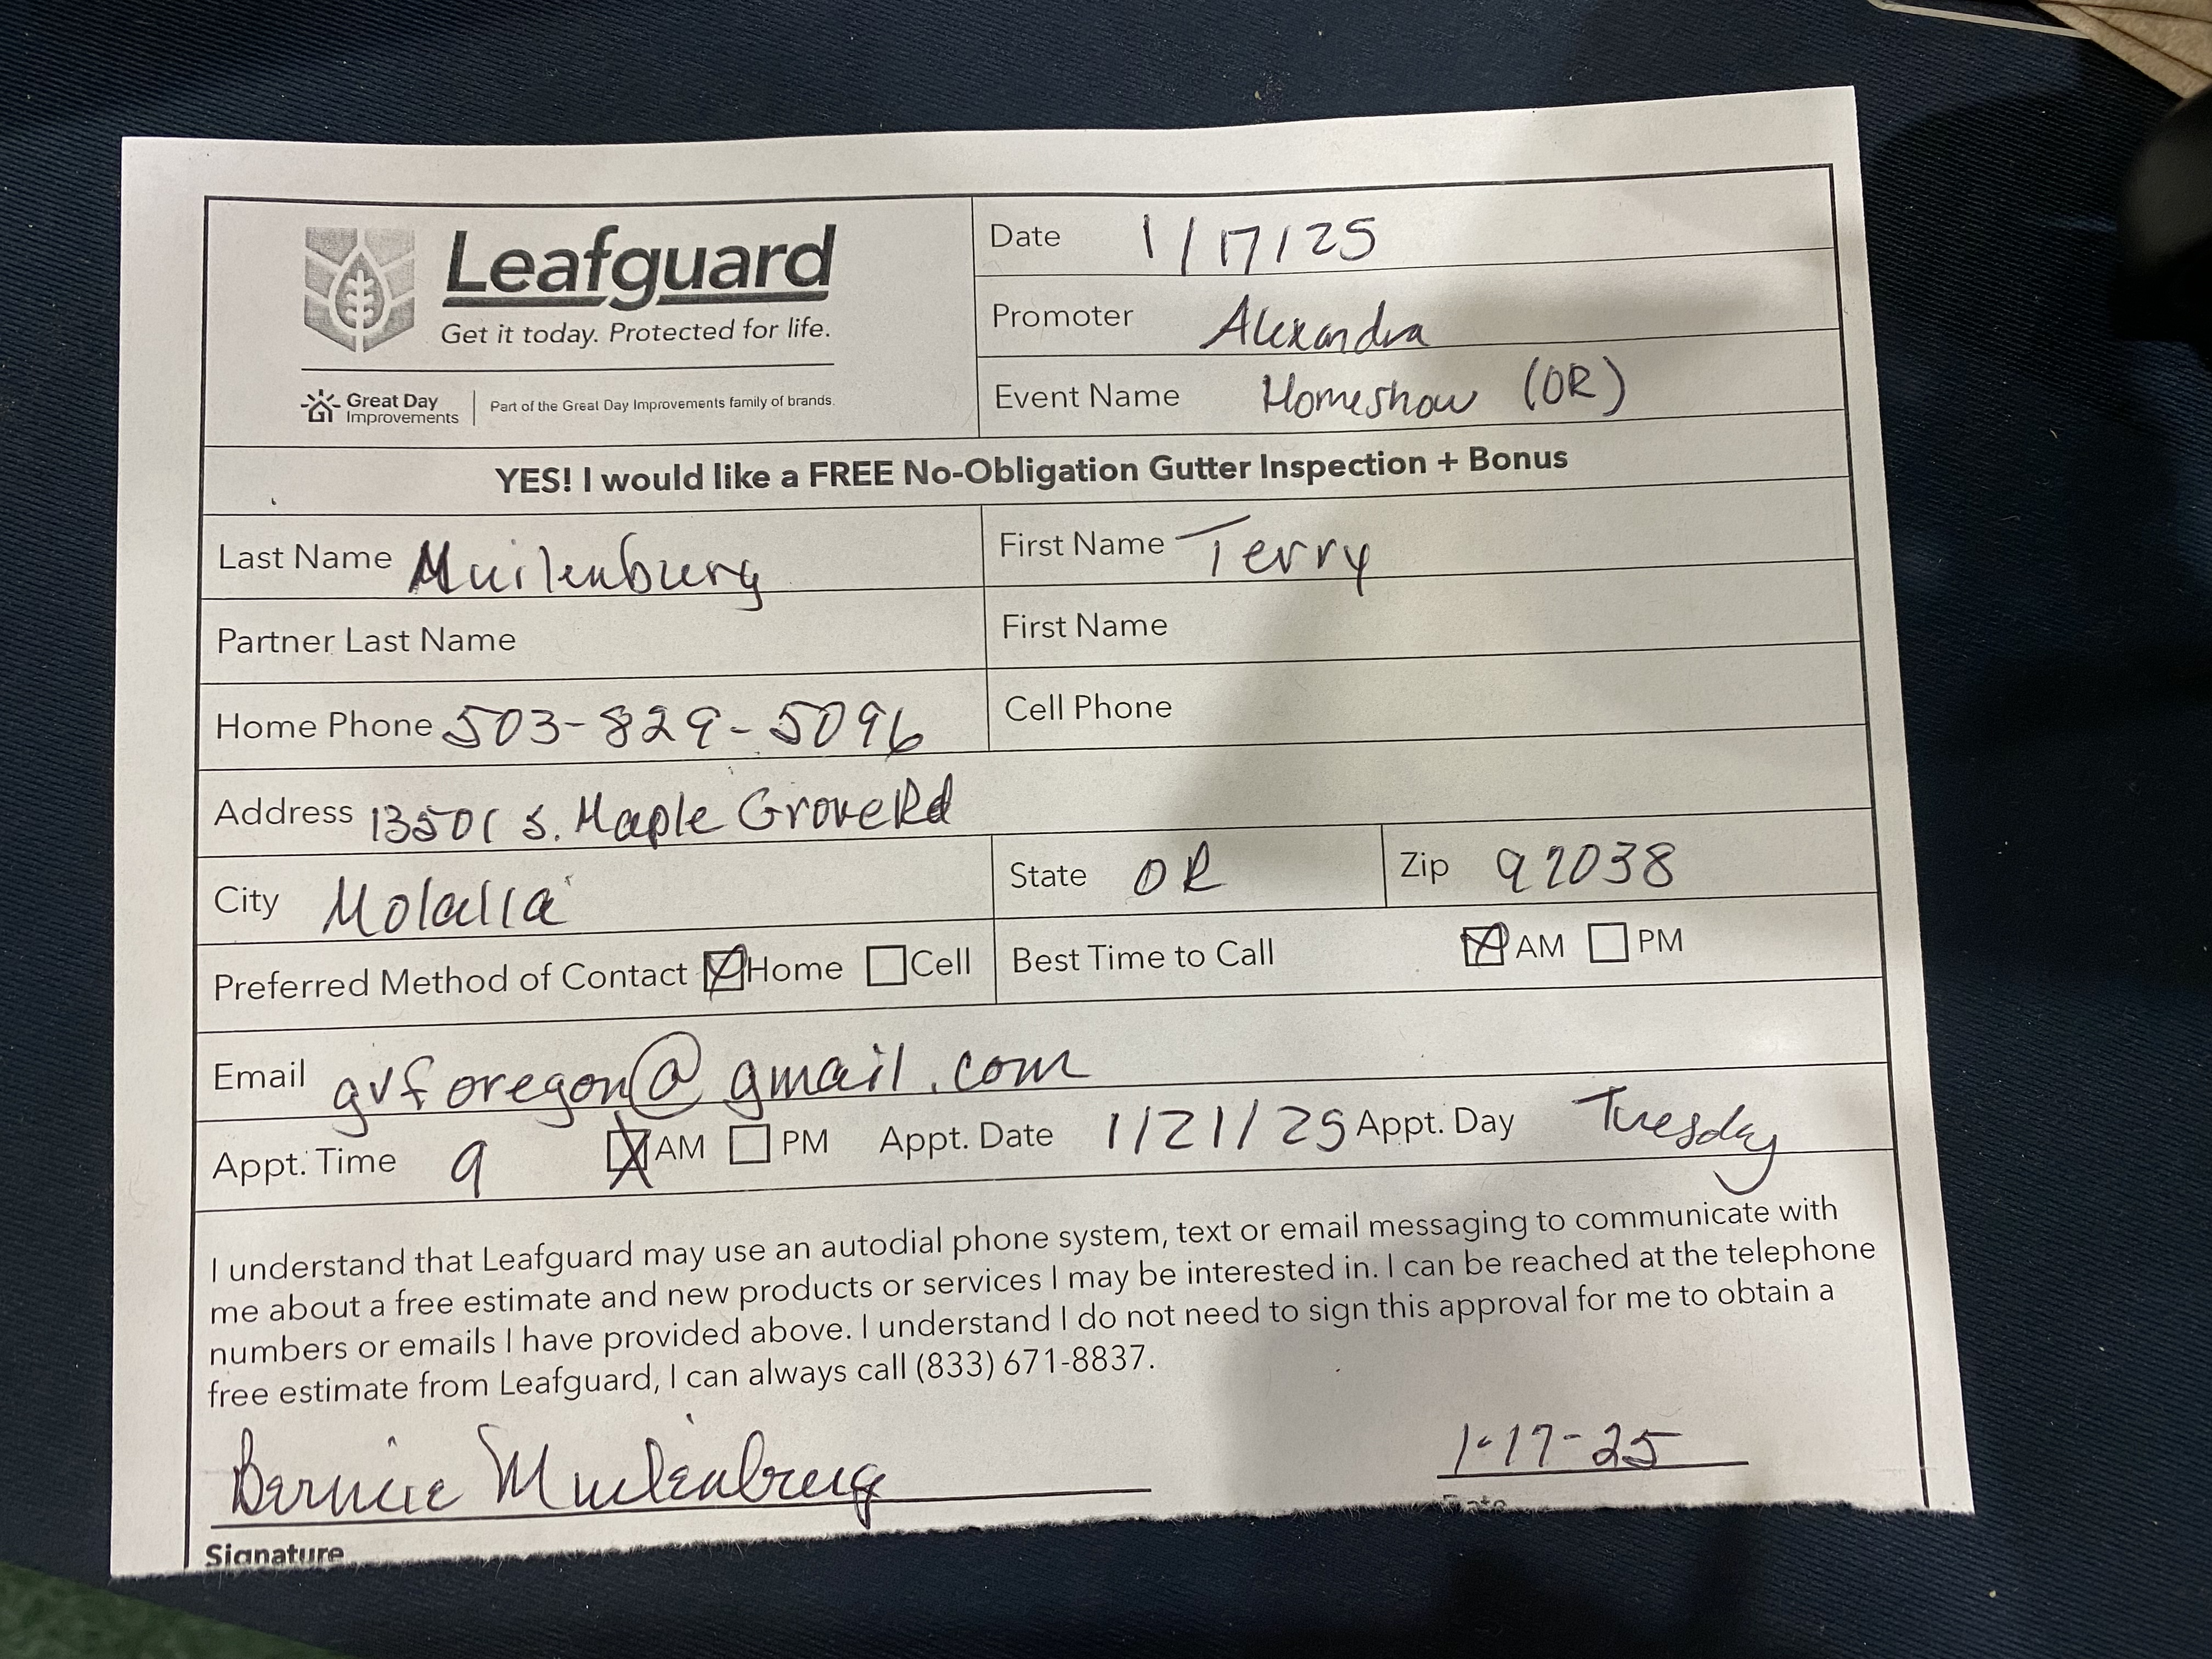 Leafguard
Get it today. Protected for life.
Great Day Improvements | Part of the Great Day Improvements family of brands.
Date 1/17/25
Promoter Alexandra
Event Name Homeshow (OR)
YES! I would like a FREE No-Obligation Gutter Inspection + Bonus
Last Name Muilenburg First Name Terry
Partner Last Name First Name
Home Phone 503-829-5096 Cell Phone
Address 13501 S. Maple Grove Rd
City Molalla State OR Zip 97038
Preferred Method of Contact ☒ Home ☐ Cell Best Time to Call ☒ AM ☐ PM
Email gvforegon@gmail.com
Appt. Time 9 ☒ AM ☐ PM Appt. Date 1/21/25 Appt. Day Tuesday
I understand that Leafguard may use an autodial phone system, text or email messaging to communicate with
me about a free estimate and new products or services I may be interested in. I can be reached at the telephone
numbers or emails I have provided above. I understand I do not need to sign this approval for me to obtain a
free estimate from Leafguard, I can always call (833) 671-8837.
Muilenburg 1-17-25
Signature